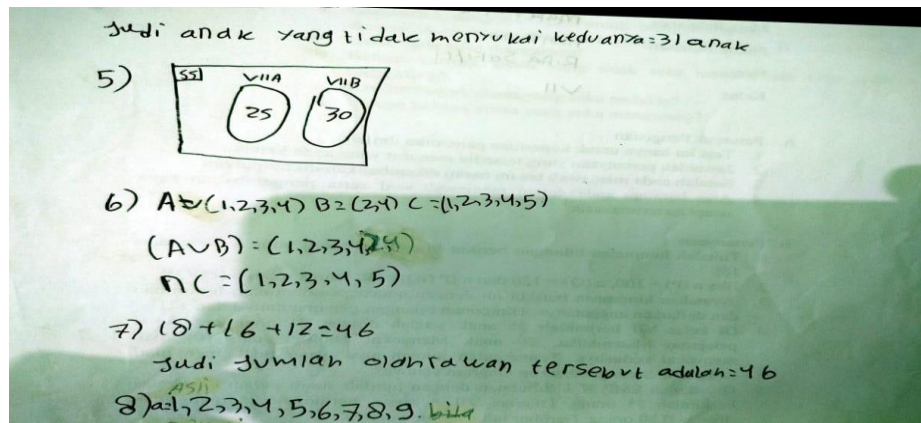 Judi anak yang tidak menyukai keduanya=31 anak
5) 55 VIIA VIIB
25 30
6) A=(1,2,3,4) B=(2,4) C=(1,2,3,4,5)
(A∪B)=(1,2,3,4,2,4)
∩C=(1,2,3,4,5)
7) 18+16+12=46
Judi Jumlah olahrawan tersebut adalah=46
Asli
8) a=1,2,3,4,5,6,7,8,9. bila